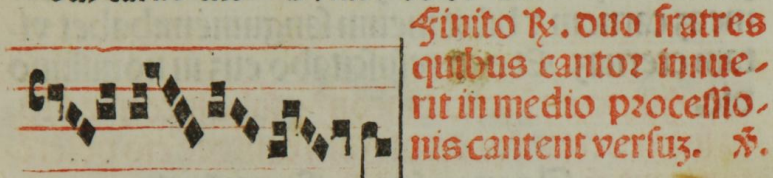 Finito ℟. duo fratres
quibus cantor innue-
rit in medio processio-
nis cantent versuꝫ. ℣.